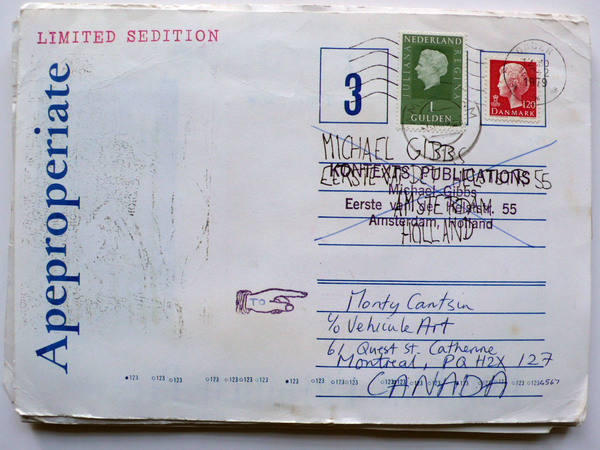 LIMITED SEDITION
Apeproperiate
3
NEDERLAND
JULIANA REGINA
1
GULDEN
120
DANMARK
1979
MICHAEL GIBBS
KONTEXTS PUBLICATIONS
EERSTE 55
Michael Gibbs
Eerste van der Helststr. 55
AMSTERDAM
Amsterdam, Holland
HOLLAND
TO
Monty Cantsin
c/o Vehicule Art
61 Ouest St. Catherine
Montreal, PQ H2X 127
CANADA
123 123 123 123 123 123 123 123 123 123 1234567